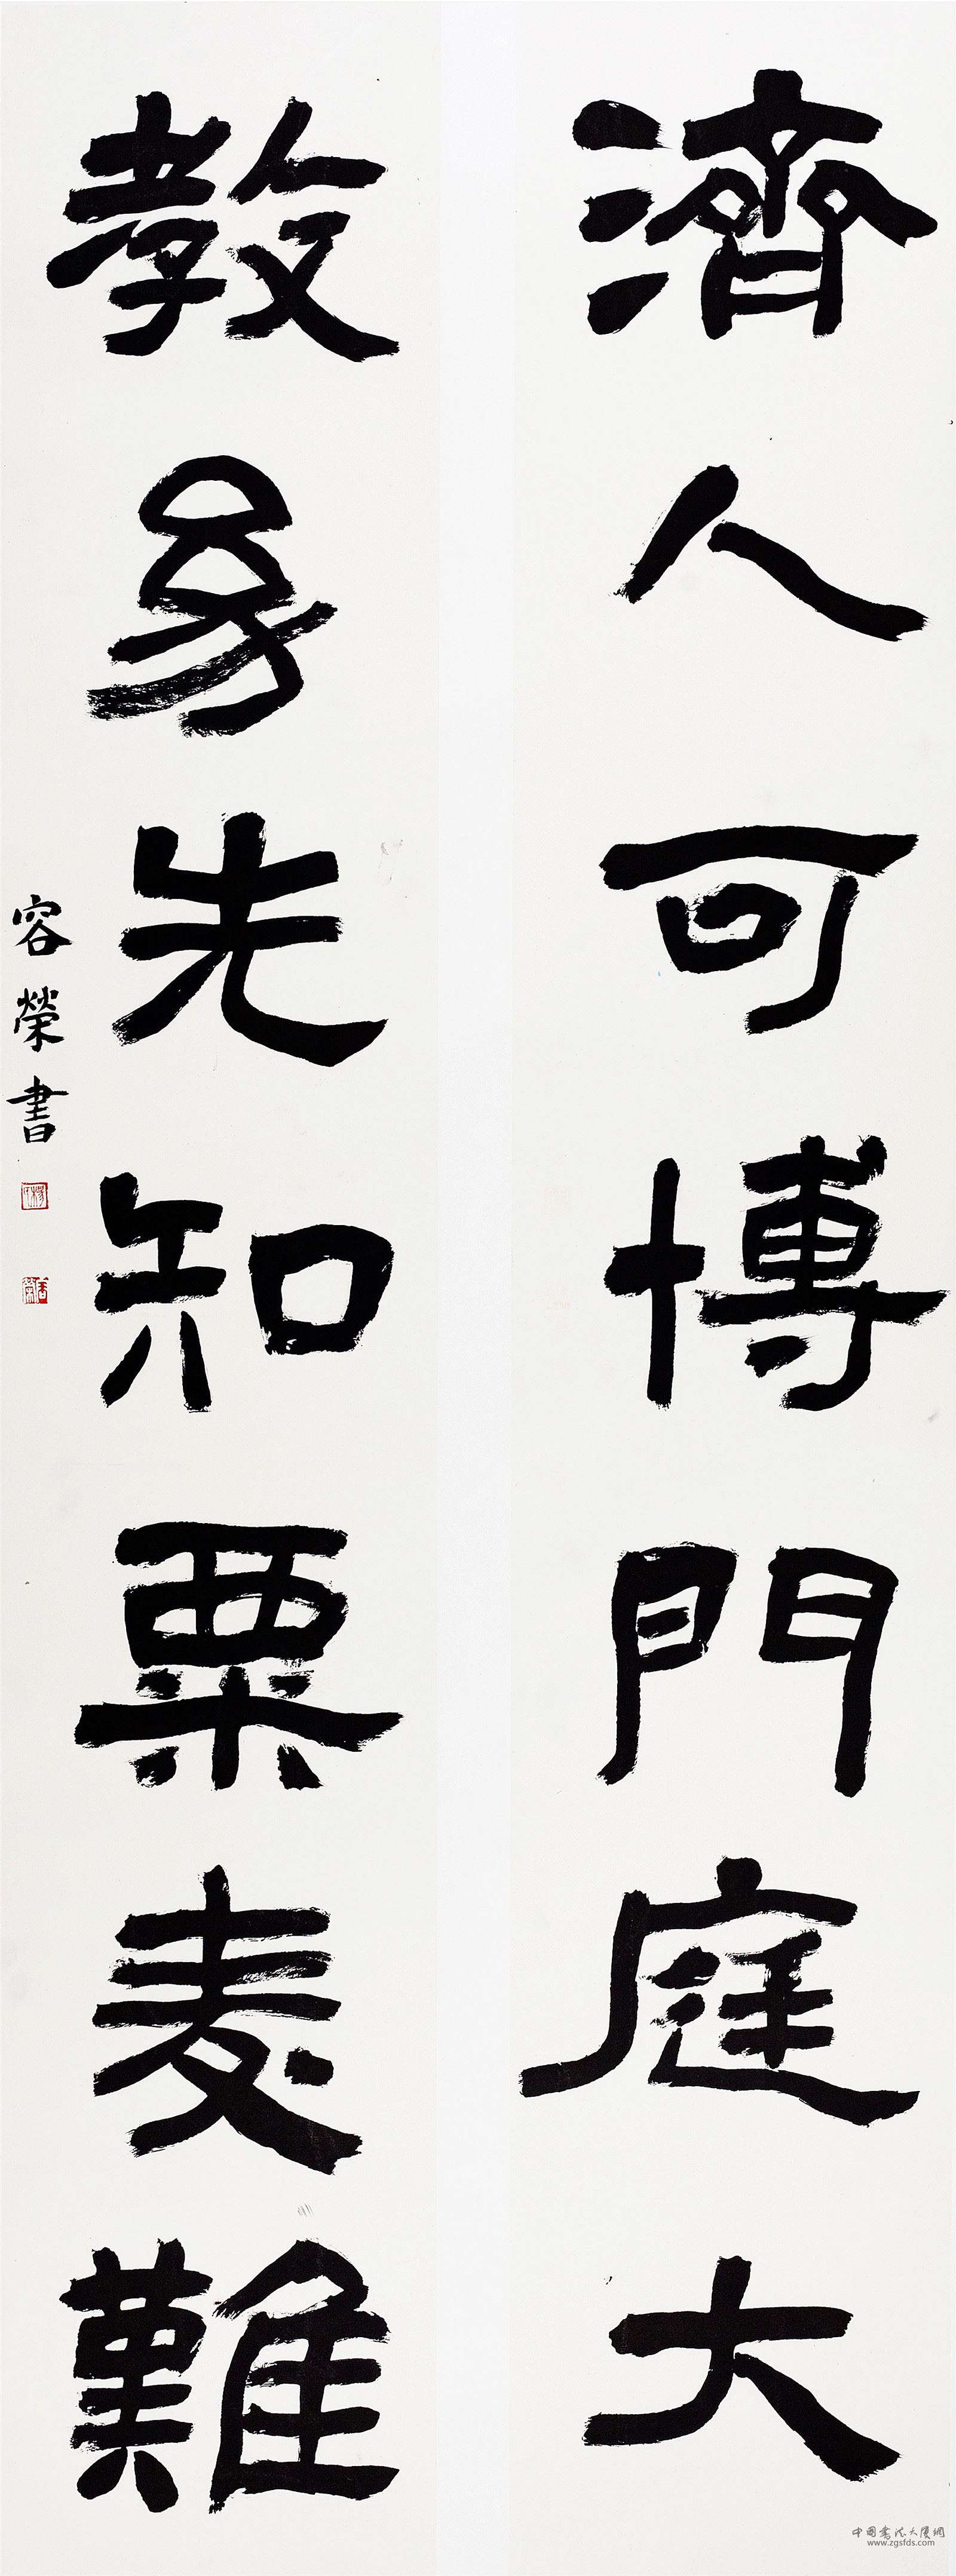 濟人可博門庭大
教多先知粟麦難
容榮書
中国書法大厦網
www.zgsfds.com